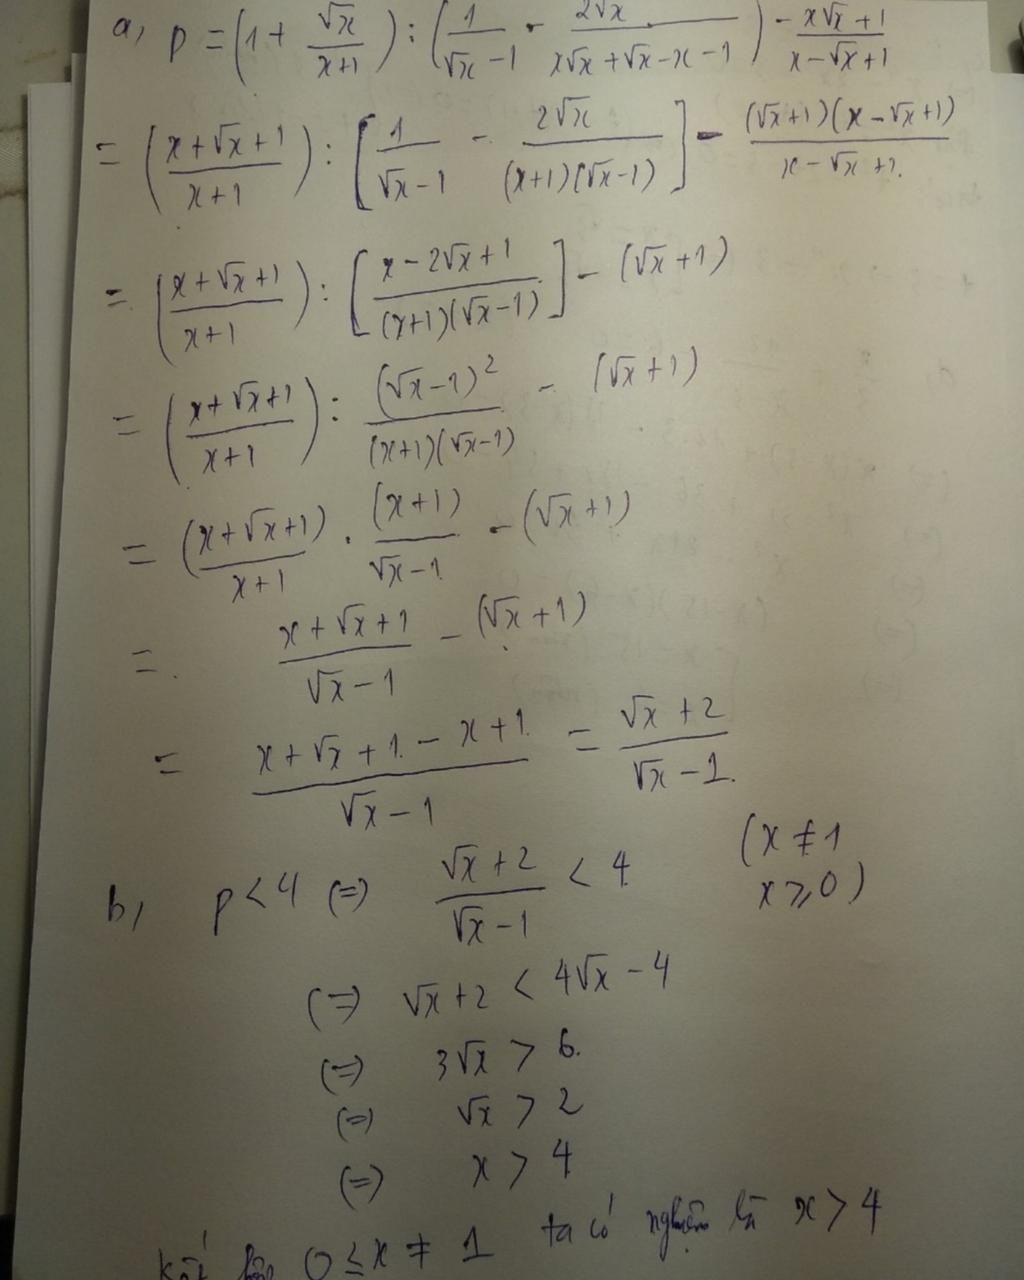 a, P = (1 + √x/(x+1)) : (1/(√x-1) - 2√x/(x√x+√x-x-1)) - (x√x+1)/(x-√x+1)
= ((x+√x+1)/(x+1)) : [1/(√x-1) - 2√x/((x+1)(√x-1))] - (√x+1)(x-√x+1)/(x-√x+1)
= ((x+√x+1)/(x+1)) : [(x-2√x+1)/((x+1)(√x-1))] - (√x+1)
= ((x+√x+1)/(x+1)) : (√x-1)²/((x+1)(√x-1)) - (√x+1)
= (x+√x+1)/(x+1) . (x+1)/(√x-1) - (√x+1)
= (x+√x+1)/(√x-1) - (√x+1)
= (x+√x+1-x+1)/(√x-1) = (√x+2)/(√x-1)
b, P < 4 (=) (√x+2)/(√x-1) < 4 (x ≠ 1 x ≥ 0)
(=) √x+2 < 4√x-4
(=) 3√x > 6
(=) √x > 2
(=) x > 4
kết hợp 0 ≤ x ≠ 1 ta có nghiệm là x > 4